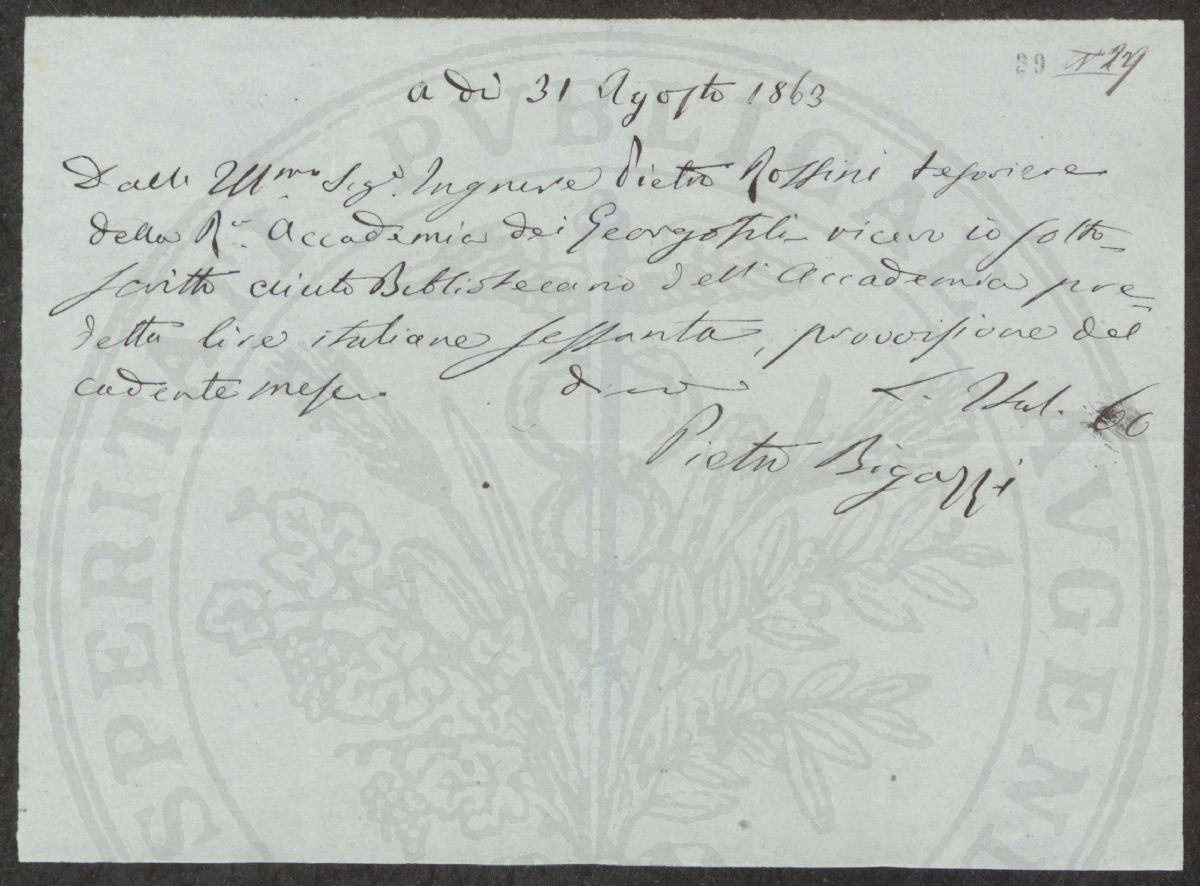 29 N° 29
a dì 31 Agosto 1863
Dall' Ill.mo Sig.r Ingnere Pietro Rossini tesoriere
della R.a Accademia dei Georgofili ricevo io sotto=
scritto aiuto Bibliotecario dell' Accademia pre=
detta lire italiane sessanta, provvisione del
cadente mese. L. Ital. 60
Pietro Bigazzi
PROSPERITATI PUBLICAE AUGENDAE